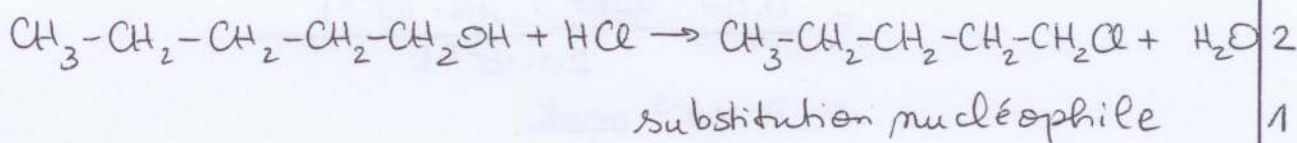 CH₃-CH₂-CH₂-CH₂-CH₂OH + HCl → CH₃-CH₂-CH₂-CH₂-CH₂Cl + H₂O 2
substitution nucléophile 1